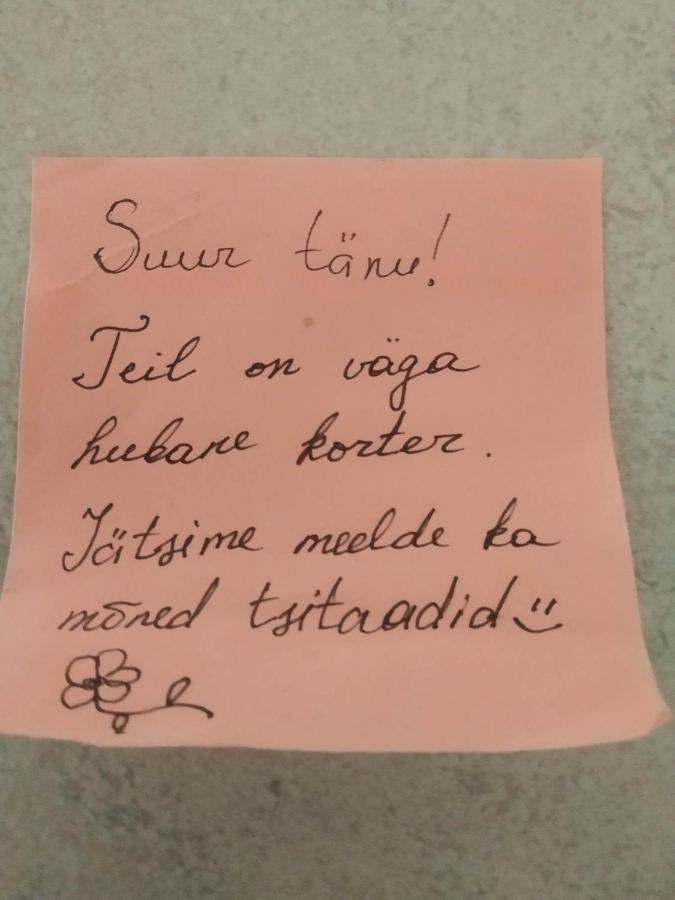 Suur tänu!
Teil on väga
hubane korter.
Jätsime meelde ka
mõned tsitaadid